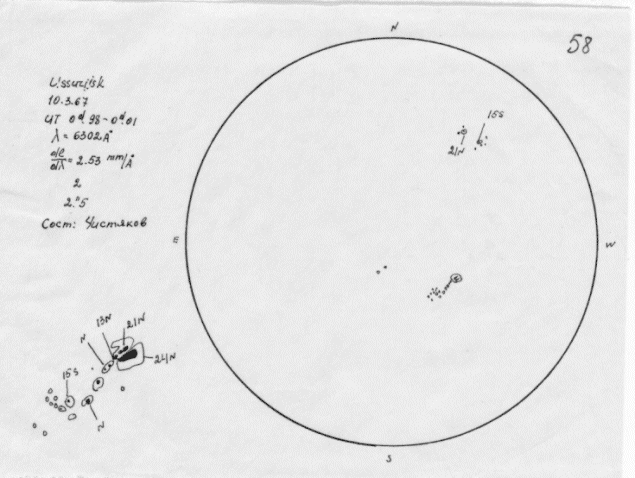 58
Ussurijsk
10.3.67
UT 0ᵈ.98-0ᵈ.01
λ = 6302 A°
dl/dλ = 2.53 mm/A°
2
2."5
Сост: Чистяков
N
15S
21N
E
W
S
13N
21N
N
24N
15S
N